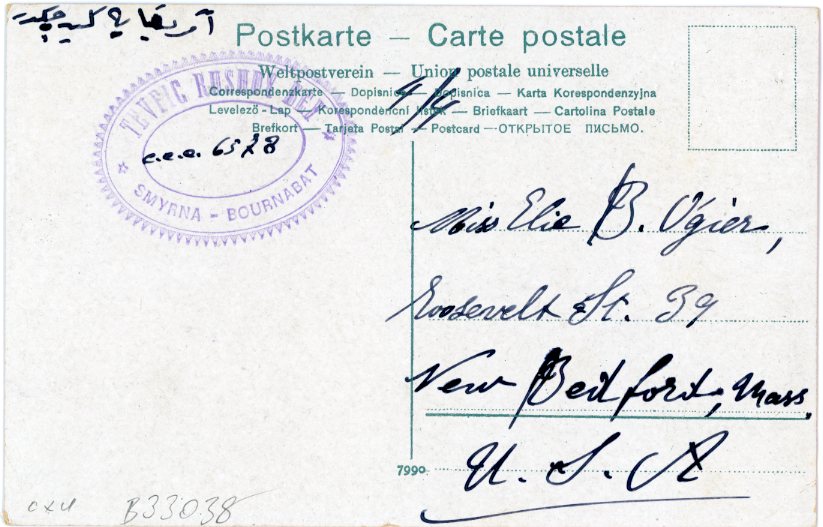 آمریقایه كیده جكدر
Postkarte — Carte postale
Weltpostverein — Union postale universelle
Correspondenzkarte — Dopisnice — Dopisnica — Karta Korespondenzyjna
Levelező-Lap — Korespondenční lístek — Briefkaart — Cartolina Postale
Brefkort — Tarjeta Postal — Postcard — ОТКРЫТОЕ ПИСЬМО.
4/4
TEVFIC RUSHDY BEY
c.c.c. 6578
SMYRNA - BOURNABAT
Miss Elie B. Ogier,
Roosevelt St. 39
New Bedford, Mass.
U. S. A
7990
B33038